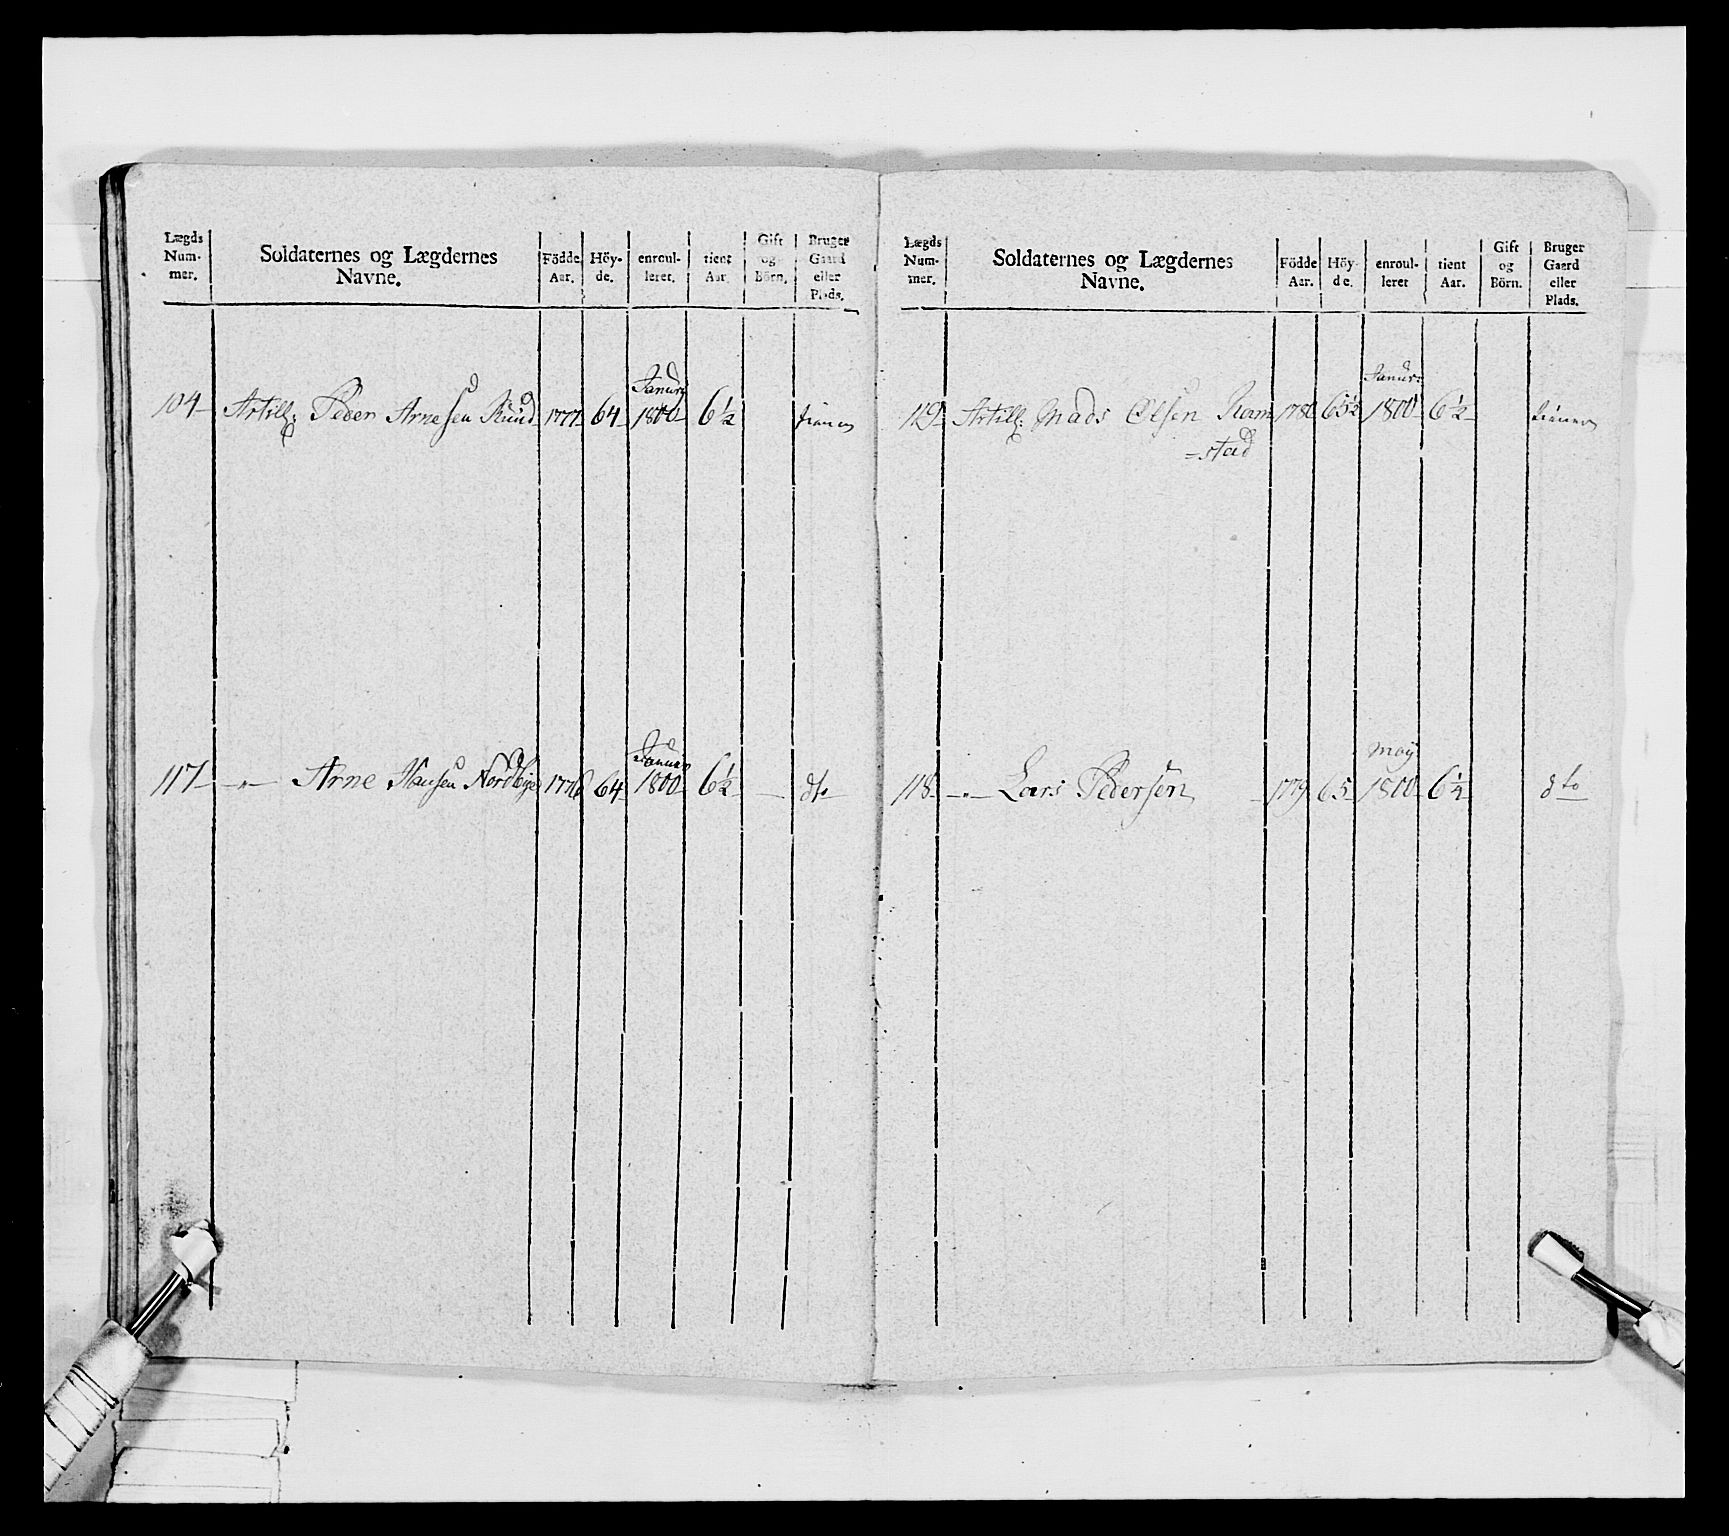 Lægds Num- mer. | Soldaternes og Lægdernes Navne. | Födde Aar. | Höy- de. | enroul- leret. | tient Aar. | Gift og Börn. | Bruger Gaard eller Plads.
Januarj
104 – Artill: Peder Arnesen Ruud 1777 64 – 1800 – 6½ tiener
Januar
117 – –„– Arne Hansen Nordbye 1776 64 – 1800 6½ – – dto
Lægds Num- mer. | Soldaternes og Lægdernes Navne. | Födde Aar. | Höy- de. | enroul- leret | tient Aar. | Gift og Börn. | Bruger Gaard eller Plads.
Januar:
119 – Artill: Mads Olsen Ram 1780 65½ 1800 – 6½ – tiener
= stad
May
118 – –„– Lars Pedersen – 1779 65 – 1800 – 6¼ dto